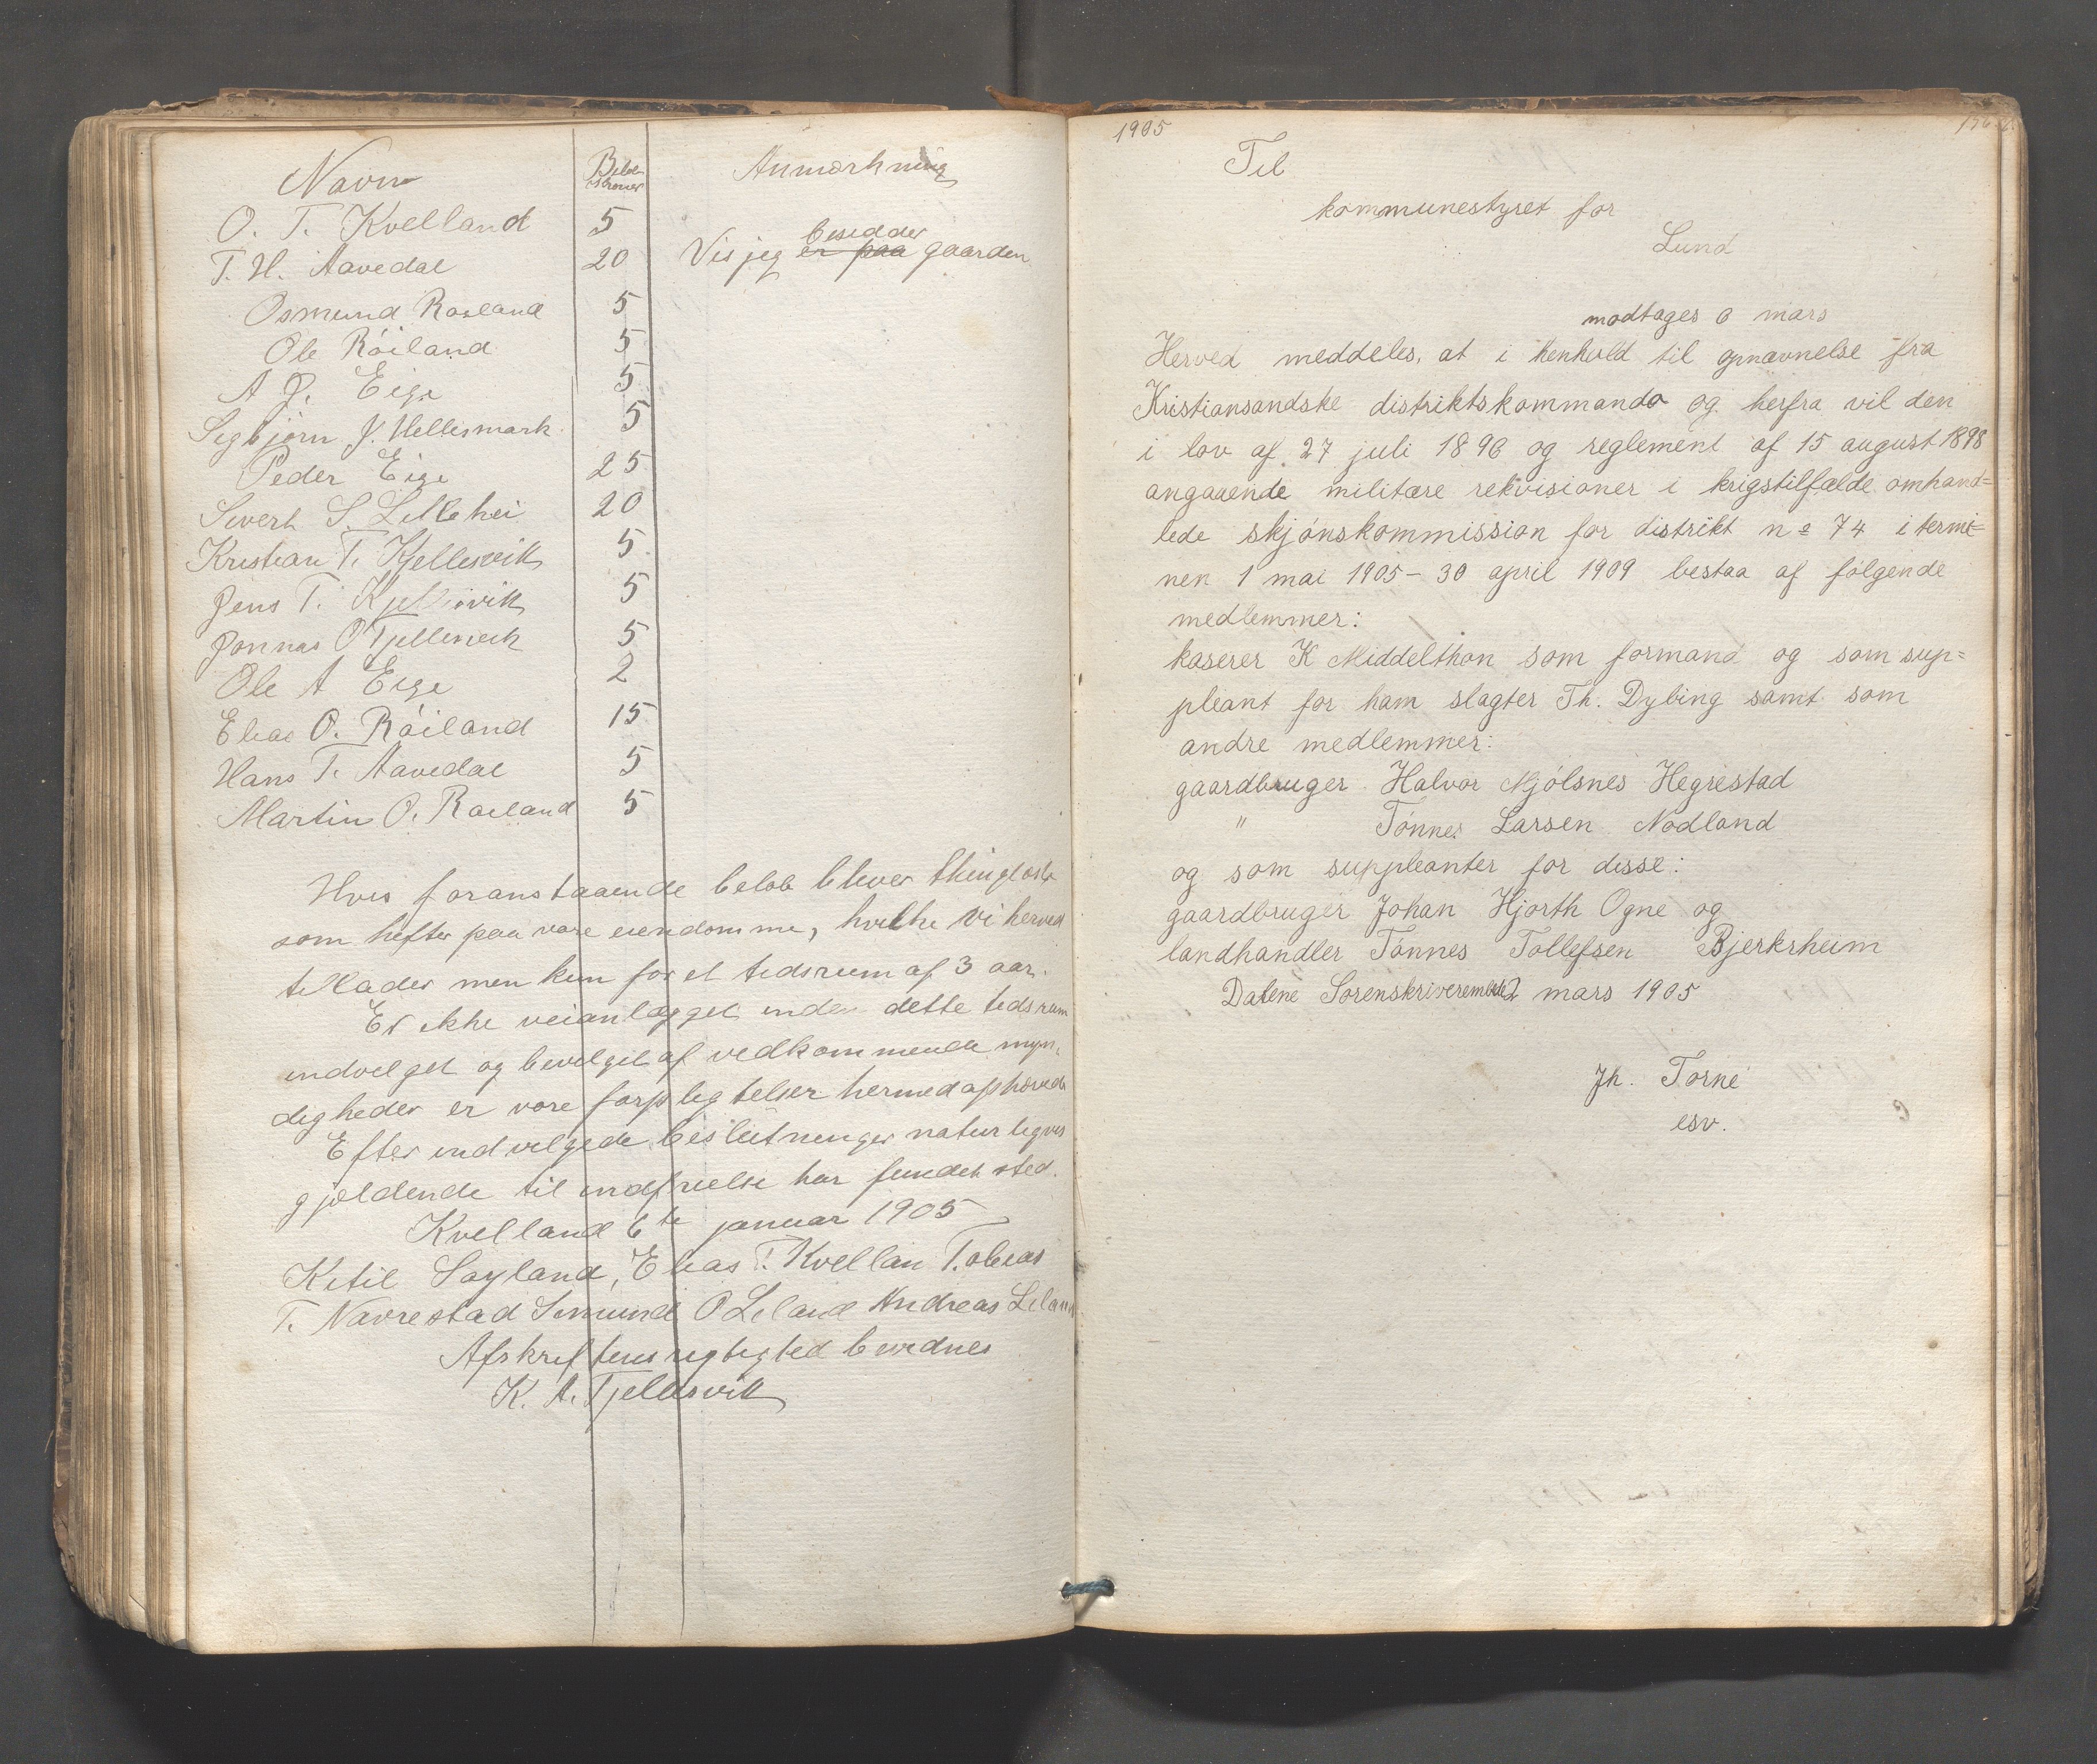 Navn Beløb kroner Anmærkning
O. T. Kvelland 5
T. H. Aavedal 20 Vis jeg er paa besidder gaarden
Osmund Røiland 5
Ole Røiland 5
A J. Eige 5
Segbjørn J. Hellesmark 5
Peder Eige 25
Sivert S. Lillehei 20
Kristian T. Kjellesvik 5
Jens T. Kjellesvik 5
Jonnas O Tjellesvik 5
Ole A Eige 2
Elias O. Røiland 15
Hans T. Aavedal 5
Martin O. Røiland 5
Hvis foranstaaende beløb bliver thinglæste
som hefter paa vore eiendomme, hvilke vi herved
tillader men kun for et tidsrum af 3 aar.
Er ikke veianlægget inden dette tidsrum
indvilget og bevilget af vedkommende myn-
digheder er vore forpligtelser hermed ophævede
Efter indvilgede beslutninger naturligvis
gjældende til indfrielse har fundet sted.
Kvelland 6te januar 1905
Ketil Søyland, Elias T. Kvellan Tobias
T. Navrestad Simund O Leland Andreas Leland
Afskriftens rigtighed bevidnes
K. A. Tjellesvik
1905
Til
kommunestyret for
Lund
modtages 6 mars
Herved meddeles, at i henhold til opnævnelse fra
Kristiansandske distriktskommando og herfra vil den
i lov af 27 juli 1896 og reglement af 15 august 1898
angaaende militære rekvisioner i krigstilfælde omhand=
lede skjønskommission for distrikt no 74 i termi=
nen 1 mai 1905 - 30 april 1909 bestaa af følgende
medlemmer:
kaserer K Middelthon som formand og som sup=
pleant for ham slagter Th. Dybing samt som
andre medlemmer:
gaardbruger Halvor Mjølsnes Hegrestad
" Tønnes Larsen Nodland
og som suppleanter for disse:
gaardbruger Johan Hjorth Ogne og
landhandler Tønnes Tollefsen Bjerkreim
Dalene Sorenskriverembede 2 mars 1905
Jh. Torne
esv.